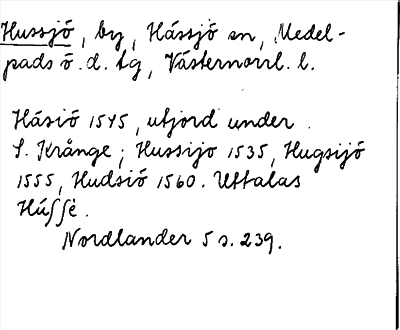 Hussjö, by, Hässjö sn, Medel-
pads ö. d. tg, Västernorrl. l.
Häsiö 1545, utjord under
S. Krånge; Hussijo 1535, Hugsijö
1555, Hudsiö 1560. Uttalas
Húſſè.
Nordlander 5 s. 239.